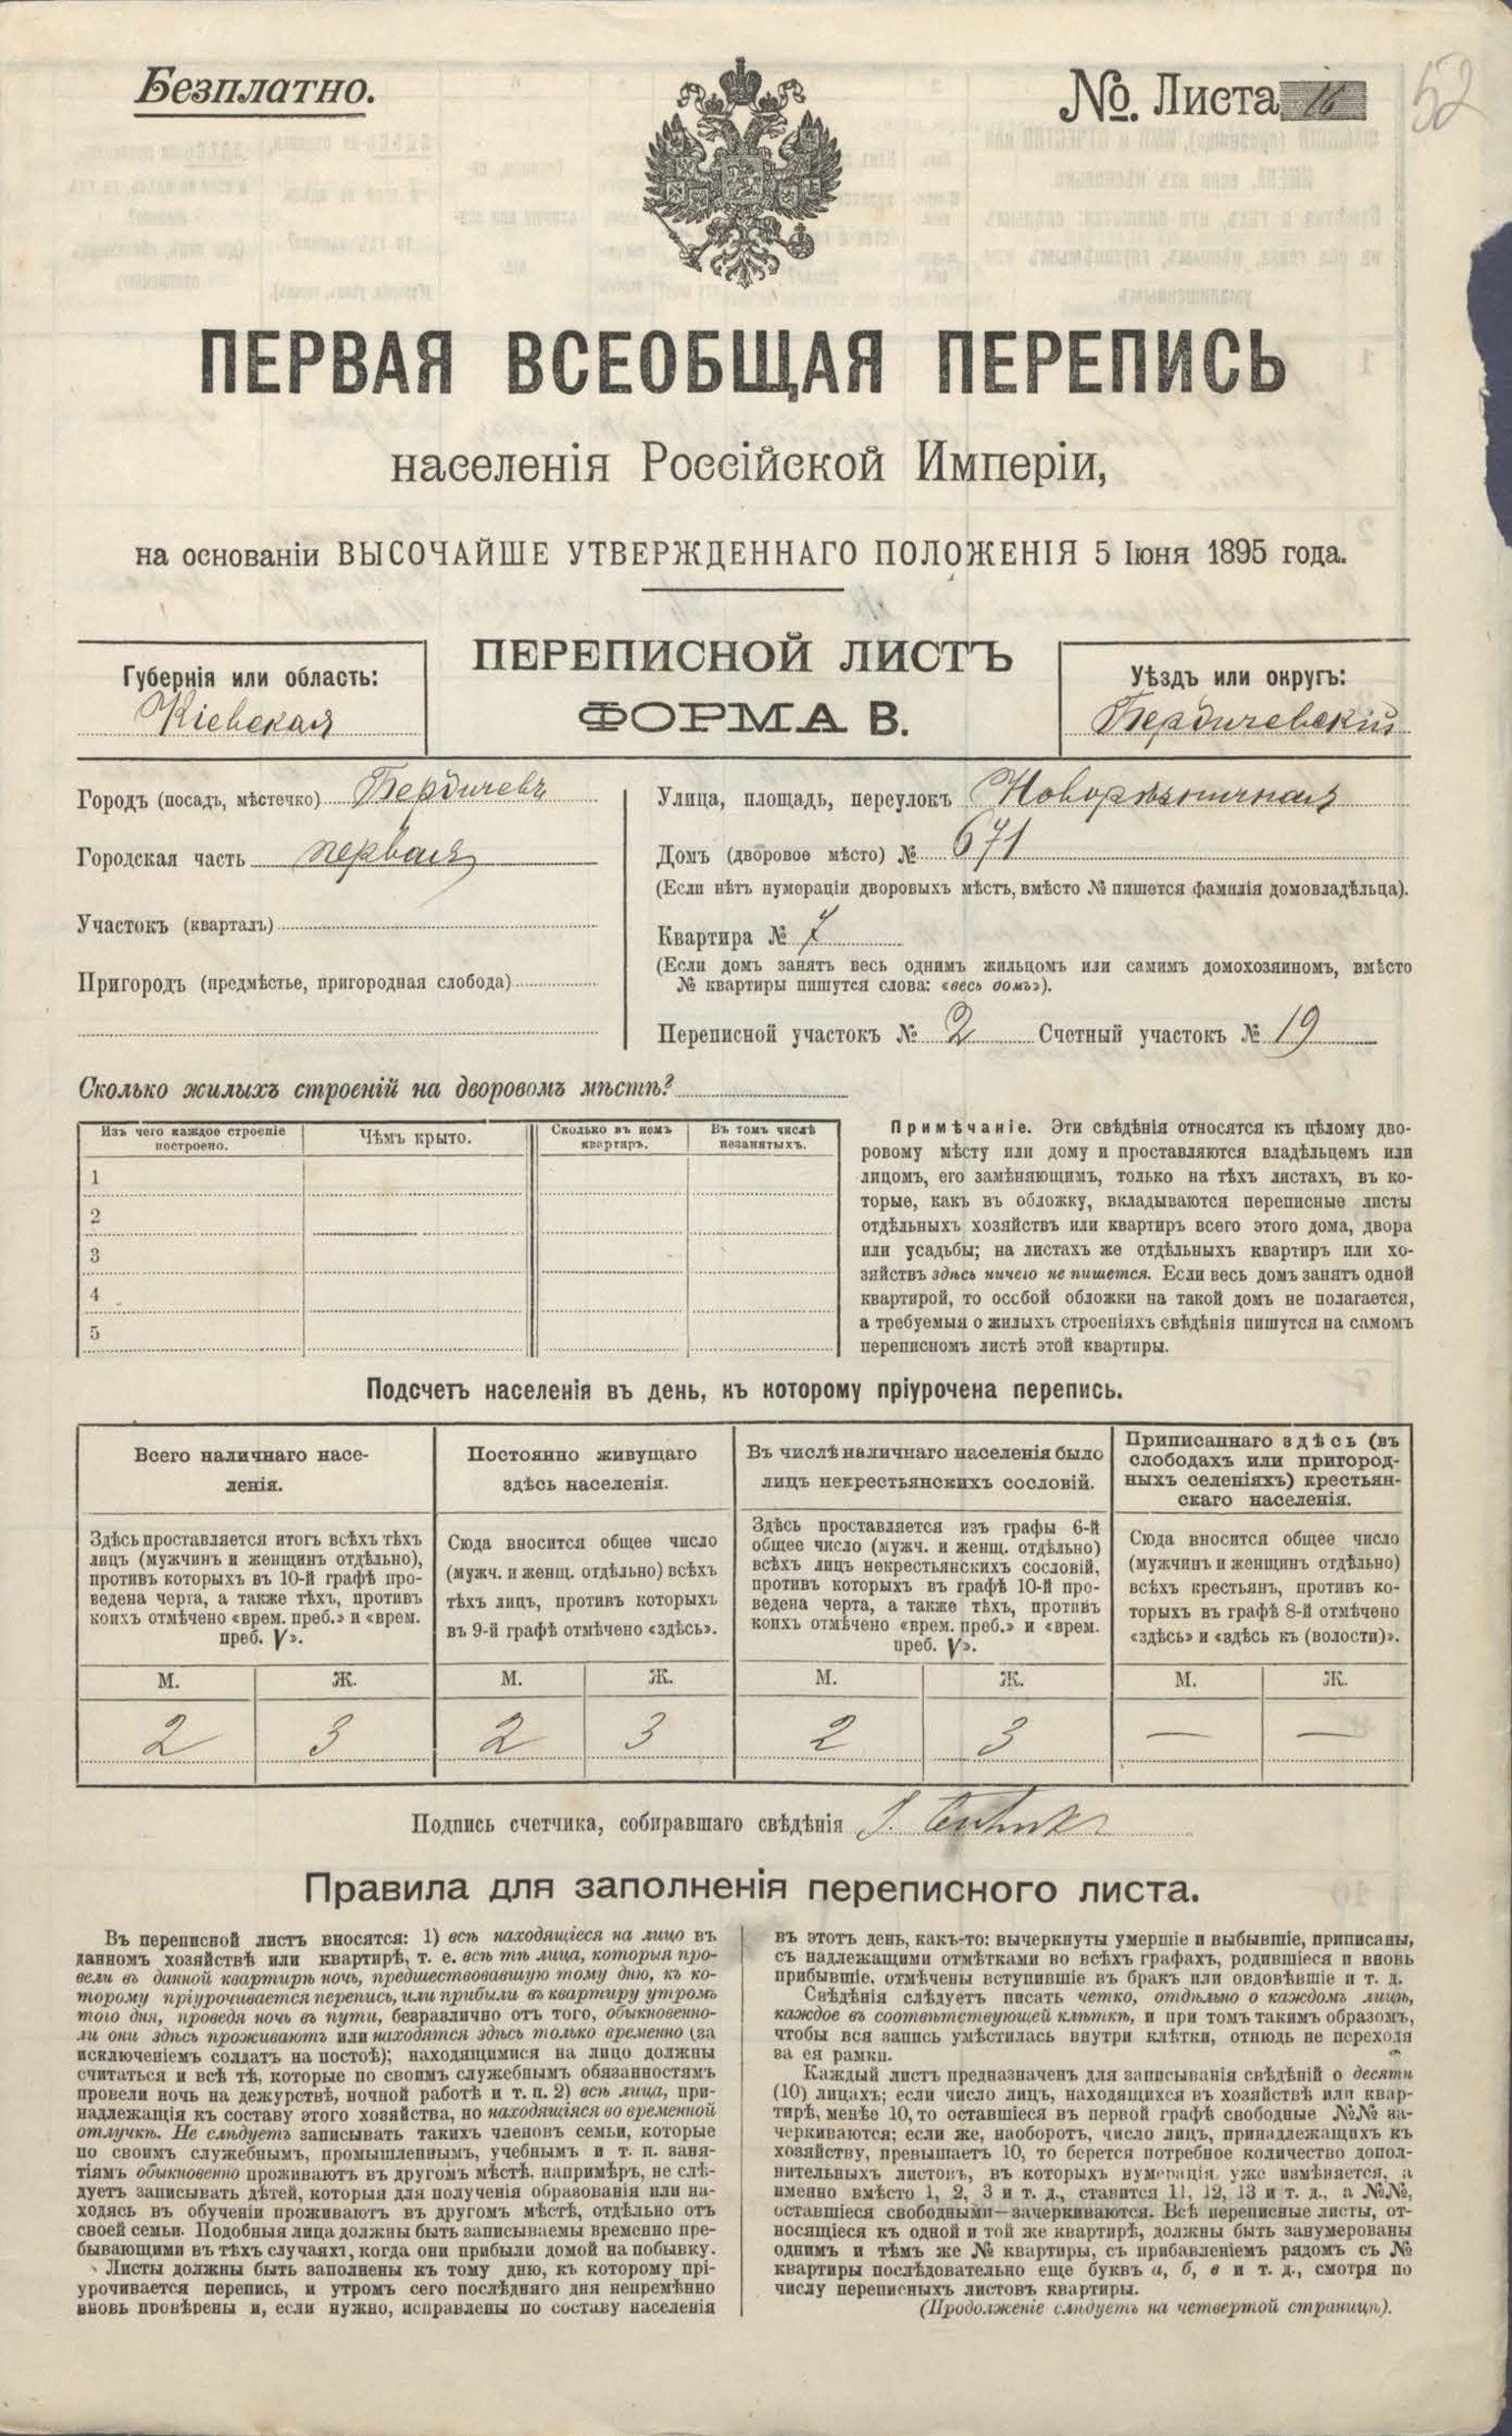 Безплатно.
№. Листа 16
52
ПЕРВАЯ ВСЕОБЩАЯ ПЕРЕПИСЬ
населенія Россійской Имперіи,
на основаніи ВЫСОЧАЙШЕ УТВЕРЖДЕННАГО ПОЛОЖЕНІЯ 5 Іюня 1895 года.
ПЕРЕПИСНОЙ ЛИСТЪ
ФОРМА В.
Губернія или область:
Кіевская
Уѣздъ или округъ:
Бердичевскій
Городъ (посадъ, мѣстечко) Бердичевъ
Городская часть первая
Участокъ (кварталъ)
Пригородъ (предмѣстье, пригородная слобода)
Улица, площадь, переулокъ Новорѣзничная
Домъ (дворовое мѣсто) № 671
(Если нѣтъ нумераціи дворовыхъ мѣстъ, вмѣсто № пишется фамилія домовладѣльца).
Квартира № 7
(Если домъ занятъ весь однимъ жильцомъ или самимъ домохозяиномъ, вмѣсто
№ квартиры пишутся слова: «весь домъ»).
Переписной участокъ № 2 Счетный участокъ № 19
Сколько жилыхъ строеній на дворовомъ мѣстѣ?
Изъ чего каждое строеніе
построено.
Чѣмъ крыто.
Сколько въ немъ
квартиръ.
Въ томъ числѣ
незанятыхъ.
1
2
3
4
5
Примѣчаніе. Эти свѣдѣнія относятся къ цѣлому дво-
ровому мѣсту или дому и проставляются владѣльцемъ или
лицомъ, его замѣняющимъ, только на тѣхъ листахъ, въ ко-
торые, какъ въ обложку, вкладываются переписные листы
отдѣльныхъ хозяйствъ или квартиръ всего этого дома, двора
или усадьбы; на листахъ же отдѣльныхъ квартиръ или хо-
зяйствъ здѣсь ничего не пишется. Если весь домъ занятъ одной
квартирой, то особой обложки на такой домъ не полагается,
а требуемыя о жилыхъ строеніяхъ свѣдѣнія пишутся на самомъ
переписномъ листѣ этой квартиры.
Подсчетъ населенія въ день, къ которому пріурочена перепись.
Всего наличнаго насе-
ленія.
Постоянно живущаго
здѣсь населенія.
Въ числѣ наличнаго населенія было
лицъ некрестьянскихъ сословій.
Приписаннаго здѣсь (въ
слободахъ или пригород-
ныхъ селеніяхъ) крестьян-
скаго населенія.
Здѣсь проставляется итогъ всѣхъ тѣхъ
лицъ (мужчинъ и женщинъ отдѣльно),
противъ которыхъ въ 10-й графѣ про-
ведена черта, а также тѣхъ, противъ
коихъ отмѣчено «врем. преб.» и «врем.
преб. V».
Сюда вносится общее число
(мужч. и женщ. отдѣльно) всѣхъ
тѣхъ лицъ, противъ которыхъ
въ 9-й графѣ отмѣчено «здѣсь».
Здѣсь проставляется изъ графы 6-й
общее число (мужч. и женщ. отдѣльно)
всѣхъ лицъ некрестьянскихъ сословій,
противъ которыхъ въ графѣ 10-й про-
ведена черта, а также тѣхъ, противъ
коихъ отмѣчено «врем. преб.» и «врем.
преб. V».
Сюда вносится общее число
(мужчинъ и женщинъ отдѣльно)
всѣхъ крестьянъ, противъ ко-
торыхъ въ графѣ 8-й отмѣчено
«здѣсь» и «здѣсь къ (волости)».
М. Ж. М. Ж. М. Ж. М. Ж.
2 3 2 3 2 3 — —
Подпись счетчика, собиравшаго свѣдѣнія
Правила для заполненія переписного листа.
Въ переписной листъ вносятся: 1) всѣ находящіеся на лицо въ
данномъ хозяйствѣ или квартирѣ, т. е. всѣ тѣ лица, которыя про-
вели въ данной квартирѣ ночь, предшествовавшую тому дню, къ ко-
торому пріурочивается перепись, или прибыли въ квартиру утромъ
того дня, проведя ночь въ пути, безразлично отъ того, обыкновенно-
ли они здѣсь проживаютъ или находятся здѣсь только временно (за
исключеніемъ солдатъ на постоѣ); находящимися на лицо должны
считаться и всѣ тѣ, которые по своимъ служебнымъ обязанностямъ
провели ночь на дежурствѣ, ночной работѣ и т. п. 2) всѣ лица, при-
надлежащія къ составу этого хозяйства, но находящіяся во временной
отлучкѣ. Не слѣдуетъ записывать такихъ членовъ семьи, которые
по своимъ служебнымъ, промышленнымъ, учебнымъ и т. п. заня-
тіямъ обыкновенно проживаютъ въ другомъ мѣстѣ, напримѣръ, не слѣ-
дуетъ записывать дѣтей, которыя для полученія образованія или на-
ходясь въ обученіи проживаютъ въ другомъ мѣстѣ, отдѣльно отъ
своей семьи. Подобныя лица должны быть записываемы временно пре-
бывающими въ тѣхъ случаяхъ, когда они прибыли домой на побывку.
Листы должны быть заполнены къ тому дню, къ которому прі-
урочивается перепись, и утромъ сего послѣдняго дня непремѣнно
вновь провѣрены и, если нужно, исправлены по составу населенія
въ этотъ день, какъ-то: вычеркнуты умершіе и выбывшіе, приписаны,
съ надлежащими отмѣтками во всѣхъ графахъ, родившіеся и вновь
прибывшіе, отмѣчены вступившіе въ бракъ или овдовѣвшіе и т. д.
Свѣдѣнія слѣдуетъ писать четко, отдѣльно о каждомъ лицѣ,
каждое въ соотвѣтствующей клѣткѣ, и при томъ такимъ образомъ,
чтобы вся запись умѣстилась внутри клѣтки, отнюдь не переходя
за ея рамки.
Каждый листъ предназначенъ для записыванія свѣдѣній о десяти
(10) лицахъ; если число лицъ, находящихся въ хозяйствѣ или квар-
тирѣ, менѣе 10, то оставшіеся въ первой графѣ свободные №№ за-
черкиваются; если же, наоборотъ, число лицъ, принадлежащихъ къ
хозяйству, превышаетъ 10, то берется потребное количество допол-
нительныхъ листовъ, въ которыхъ нумерація уже измѣняется, а
именно вмѣсто 1, 2, 3 и т. д., ставится 11, 12, 13 и т. д., а №№,
оставшіеся свободными—зачеркиваются. Всѣ переписные листы, от-
носящіеся къ одной и той же квартирѣ, должны быть занумерованы
однимъ и тѣмъ же № квартиры, съ прибавленіемъ рядомъ съ №
квартиры послѣдовательно еще буквъ а, б, в и т. д., смотря по
числу переписныхъ листовъ квартиры.
(Продолженіе слѣдуетъ на четвертой страницѣ).